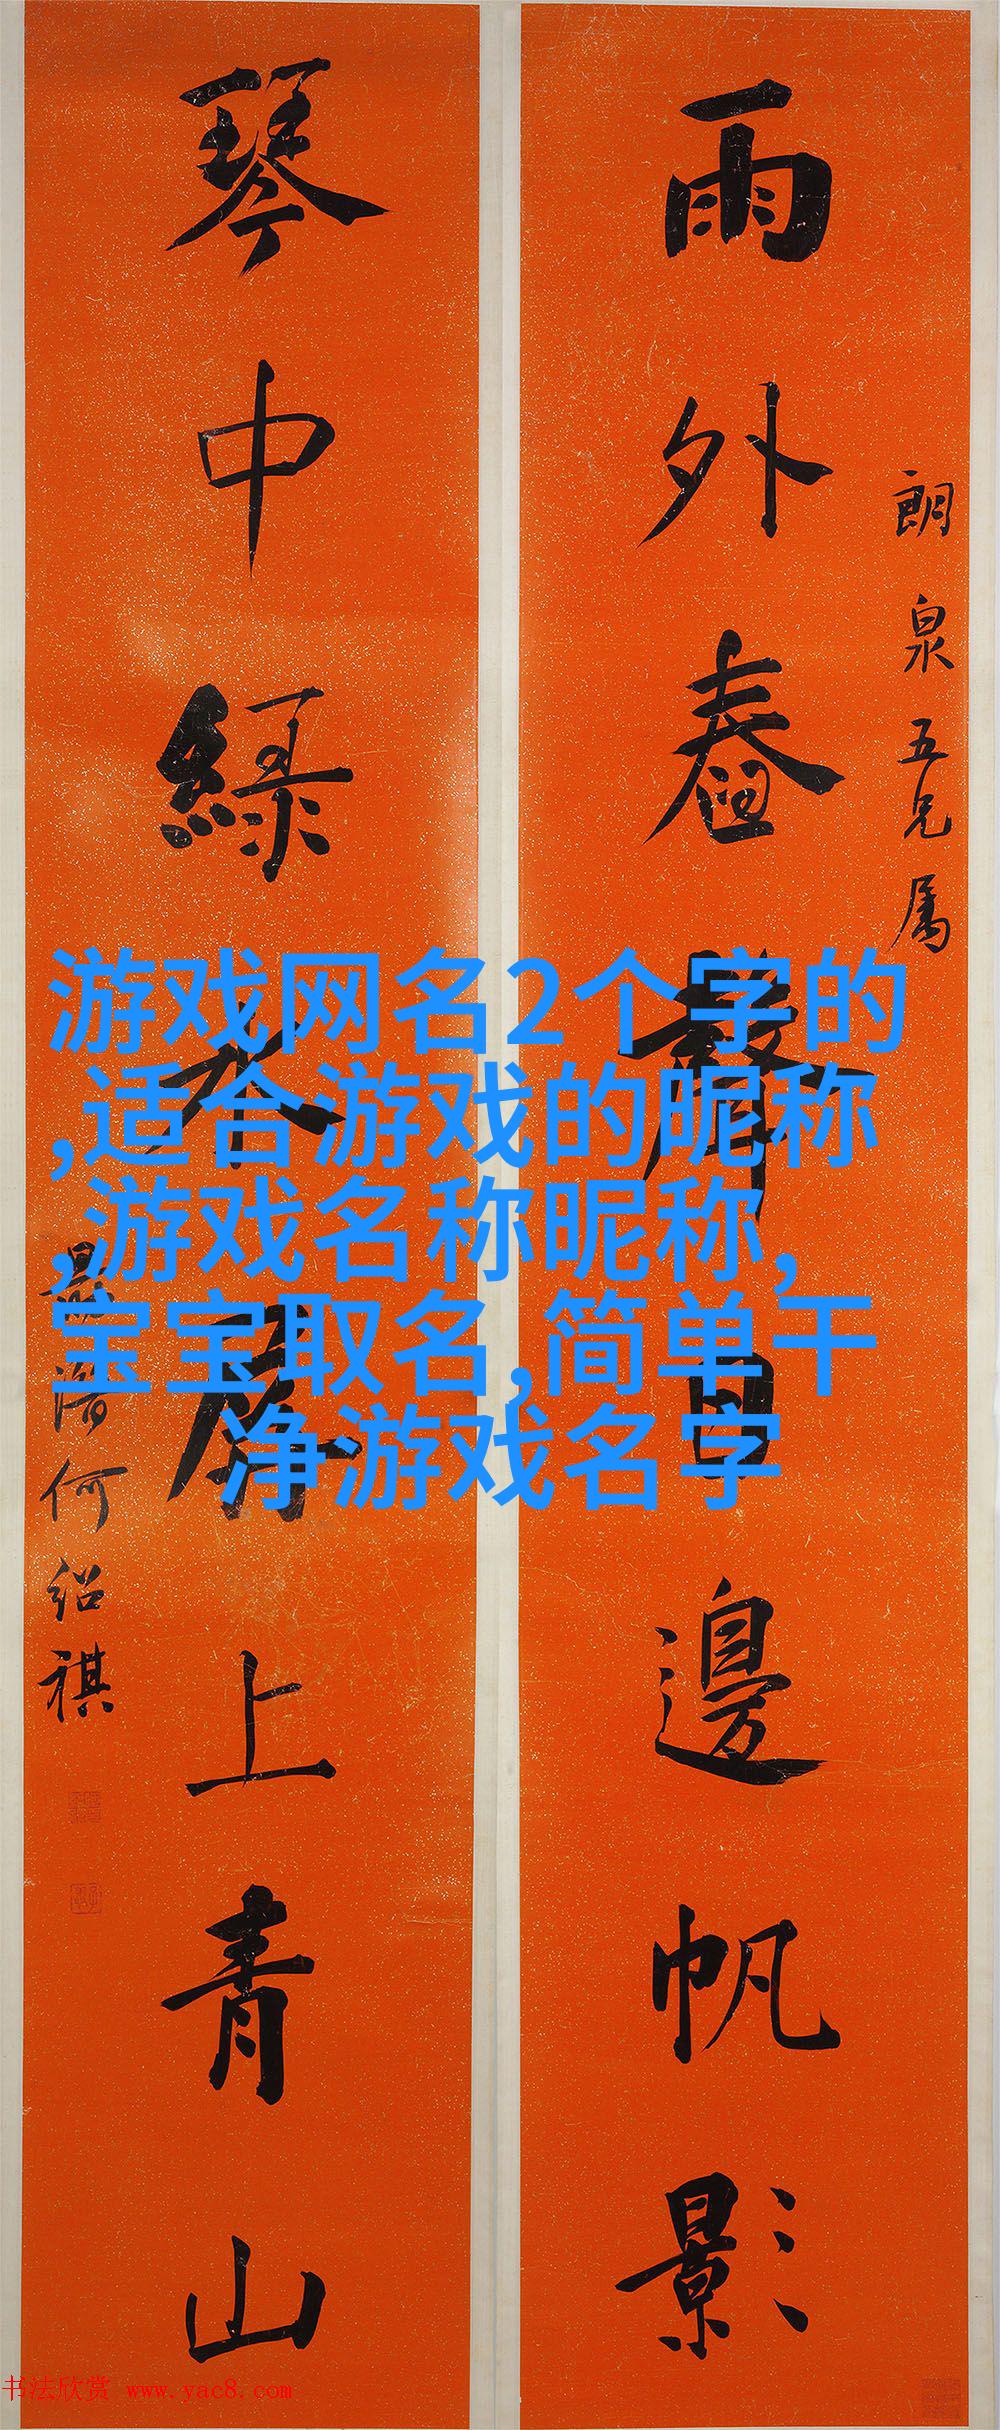 雨外舂聲日邊帆影
朗泉五兄属
琴中綠水上青山
何紹祺
游戏网名2个字的
,适合游戏的昵称
,游戏名称昵称,
宝宝取名,简单干
净游戏名字
书法欣赏 www.yac8.com